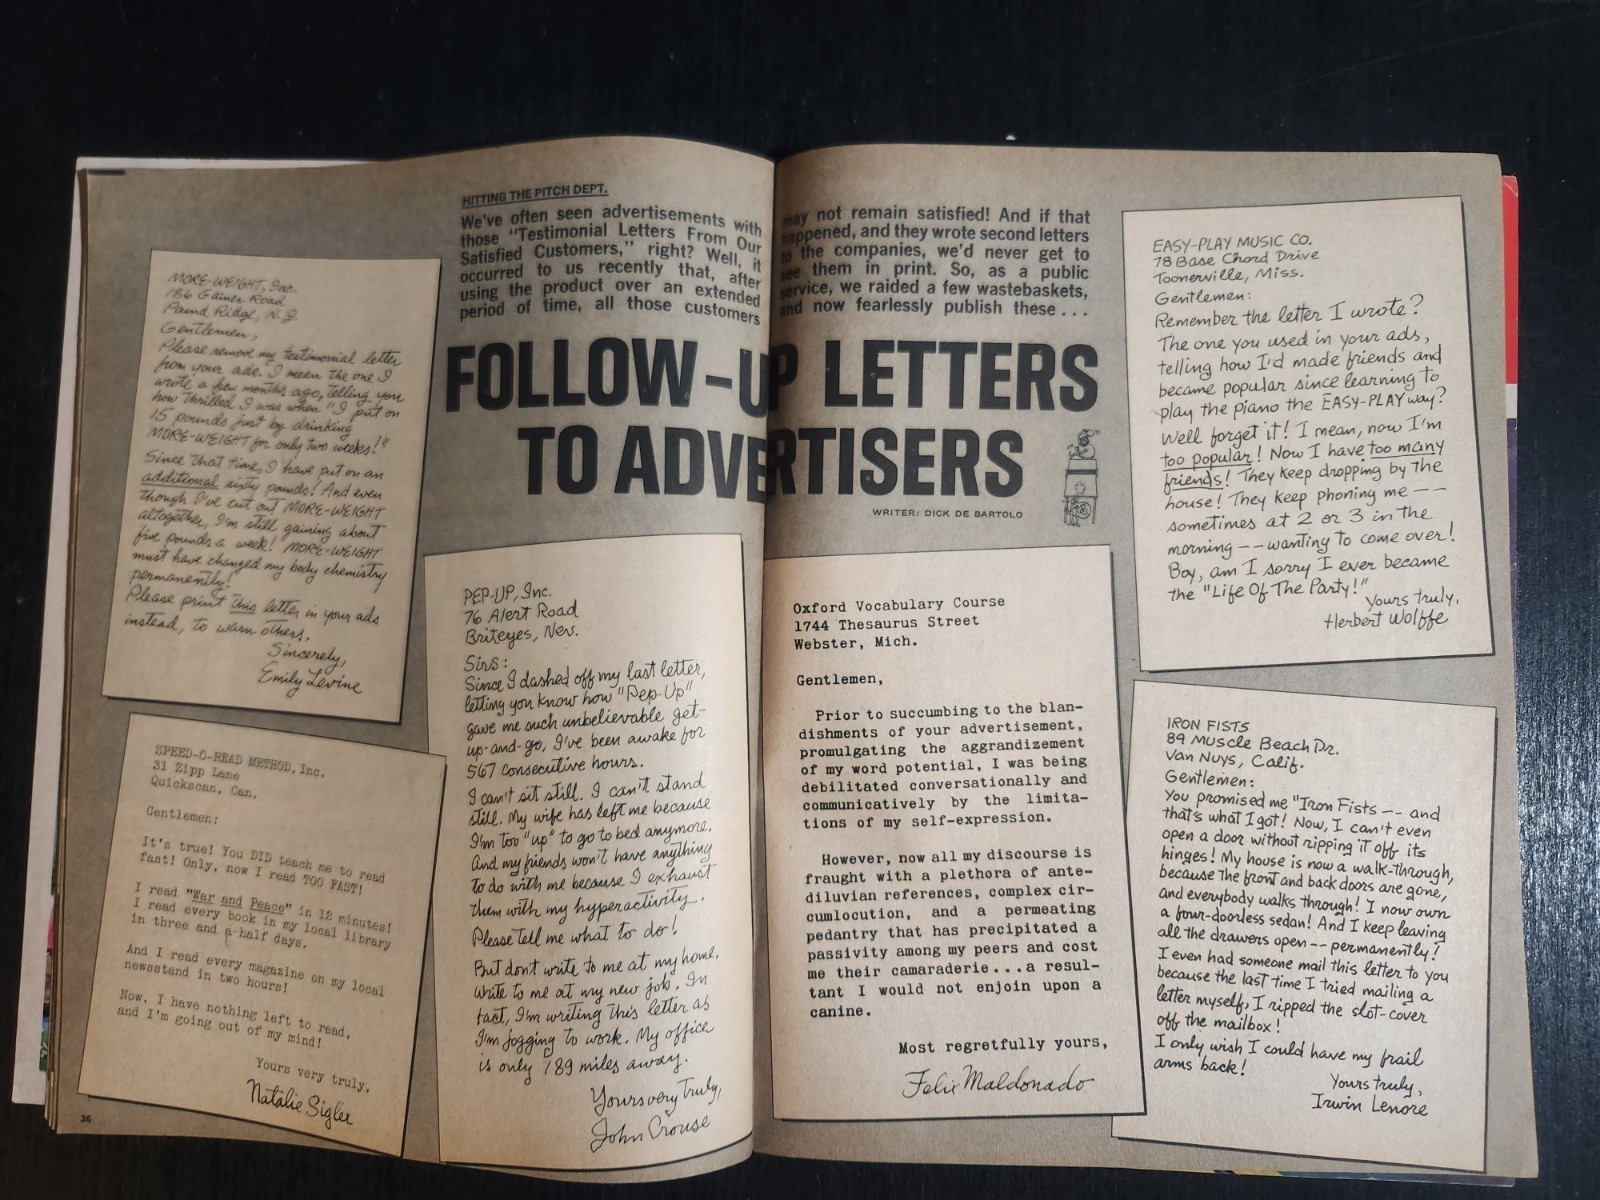 HITTING THE PITCH DEPT.
We've often seen advertisements with
those "Testimonial Letters From Our
Satisfied Customers," right? Well, it
occurred to us recently that, after
using the product over an extended
period of time, all those customers
may not remain satisfied! And if that
happened, and they wrote second letters
to the companies, we'd never get to
see them in print. So, as a public
service, we raided a few wastebaskets,
and now fearlessly publish these . . .
FOLLOW-UP LETTERS
TO ADVERTISERS
WRITER: DICK DE BARTOLO
MORE-WEIGHT, Inc.
186 Gainer Road
Pound Ridge, N.J.
Gentlemen,
Please remove my testimonial letter
from your ads. I mean the one I
wrote a few months ago, telling you
how thrilled I was when "I put on
15 pounds just by drinking
MORE-WEIGHT for only two weeks!"
Since that time, I have put on an
additional sixty pounds! And even
though I've cut out MORE-WEIGHT
altogether, I'm still gaining about
five pounds a week! MORE-WEIGHT
must have changed my body chemistry
permanently!
Please print this letter in your ads
instead, to warn others.
Sincerely,
Emily Levine
SPEED-O-READ METHOD, Inc.
31 Zipp Lane
Quickscan, Can.
Gentlemen:
It's true! You DID teach me to read
fast! Only, now I read TOO FAST!
I read "War and Peace" in 12 minutes!
I read every book in my local library
in three and a-half days.
And I read every magazine on my local
newsstand in two hours!
Now, I have nothing left to read,
and I'm going out of my mind!
Yours very truly,
Natalie Sigler
36
PEP-UP, Inc.
76 Alert Road
Briteyes, Nev.
Sirs:
Since I dashed off my last letter,
letting you know how "Pep-Up"
gave me such unbelievable get-
up-and-go, I've been awake for
567 consecutive hours.
I can't sit still. I can't stand
still. My wife has left me because
I'm too "up" to go to bed anymore.
And my friends won't have anything
to do with me because I exhaust
them with my hyperactivity.
Please tell me what to do!
But don't write to me at my home.
Write to me at my new job. In
fact, I'm writing this letter as
I'm jogging to work. My office
is only 789 miles away.
Yours very truly,
John Crouse
Oxford Vocabulary Course
1744 Thesaurus Street
Webster, Mich.
Gentlemen,
Prior to succumbing to the blan-
dishments of your advertisement,
promulgating the aggrandizement
of my word potential, I was being
debilitated conversationally and
communicatively by the limita-
tions of my self-expression.
However, now all my discourse is
fraught with a plethora of ante-
diluvian references, complex cir-
cumlocution, and a permeating
pedantry that has precipitated a
passivity among my peers and cost
me their camaraderie...a resul-
tant I would not enjoin upon a
canine.
Most regretfully yours,
Felix Maldonado
EASY-PLAY MUSIC CO.
78 Base Chord Drive
Toonerville, Miss.
Gentlemen:
Remember the letter I wrote?
The one you used in your ads,
telling how I'd made friends and
became popular since learning to
play the piano the EASY-PLAY way?
Well forget it! I mean, now I'm
too popular! Now I have too many
friends! They keep dropping by the
house! They keep phoning me --
sometimes at 2 or 3 in the
morning -- wanting to come over!
Boy, am I sorry I ever became
the "Life Of The Party!"
Yours truly,
Herbert Wolffe
IRON FISTS
89 Muscle Beach Dr.
Van Nuys, Calif.
Gentlemen:
You promised me "Iron Fists -- and
that's what I got! Now, I can't even
open a door without ripping it off its
hinges! My house is now a walk-through,
because the front and back doors are gone,
and everybody walks through! I now own
a four-doorless sedan! And I keep leaving
all the drawers open -- permanently!
I even had someone mail this letter to you
because the last time I tried mailing a
letter myself, I ripped the slot-cover
off the mailbox!
I only wish I could have my frail
arms back!
Yours truly,
Irwin Lenore